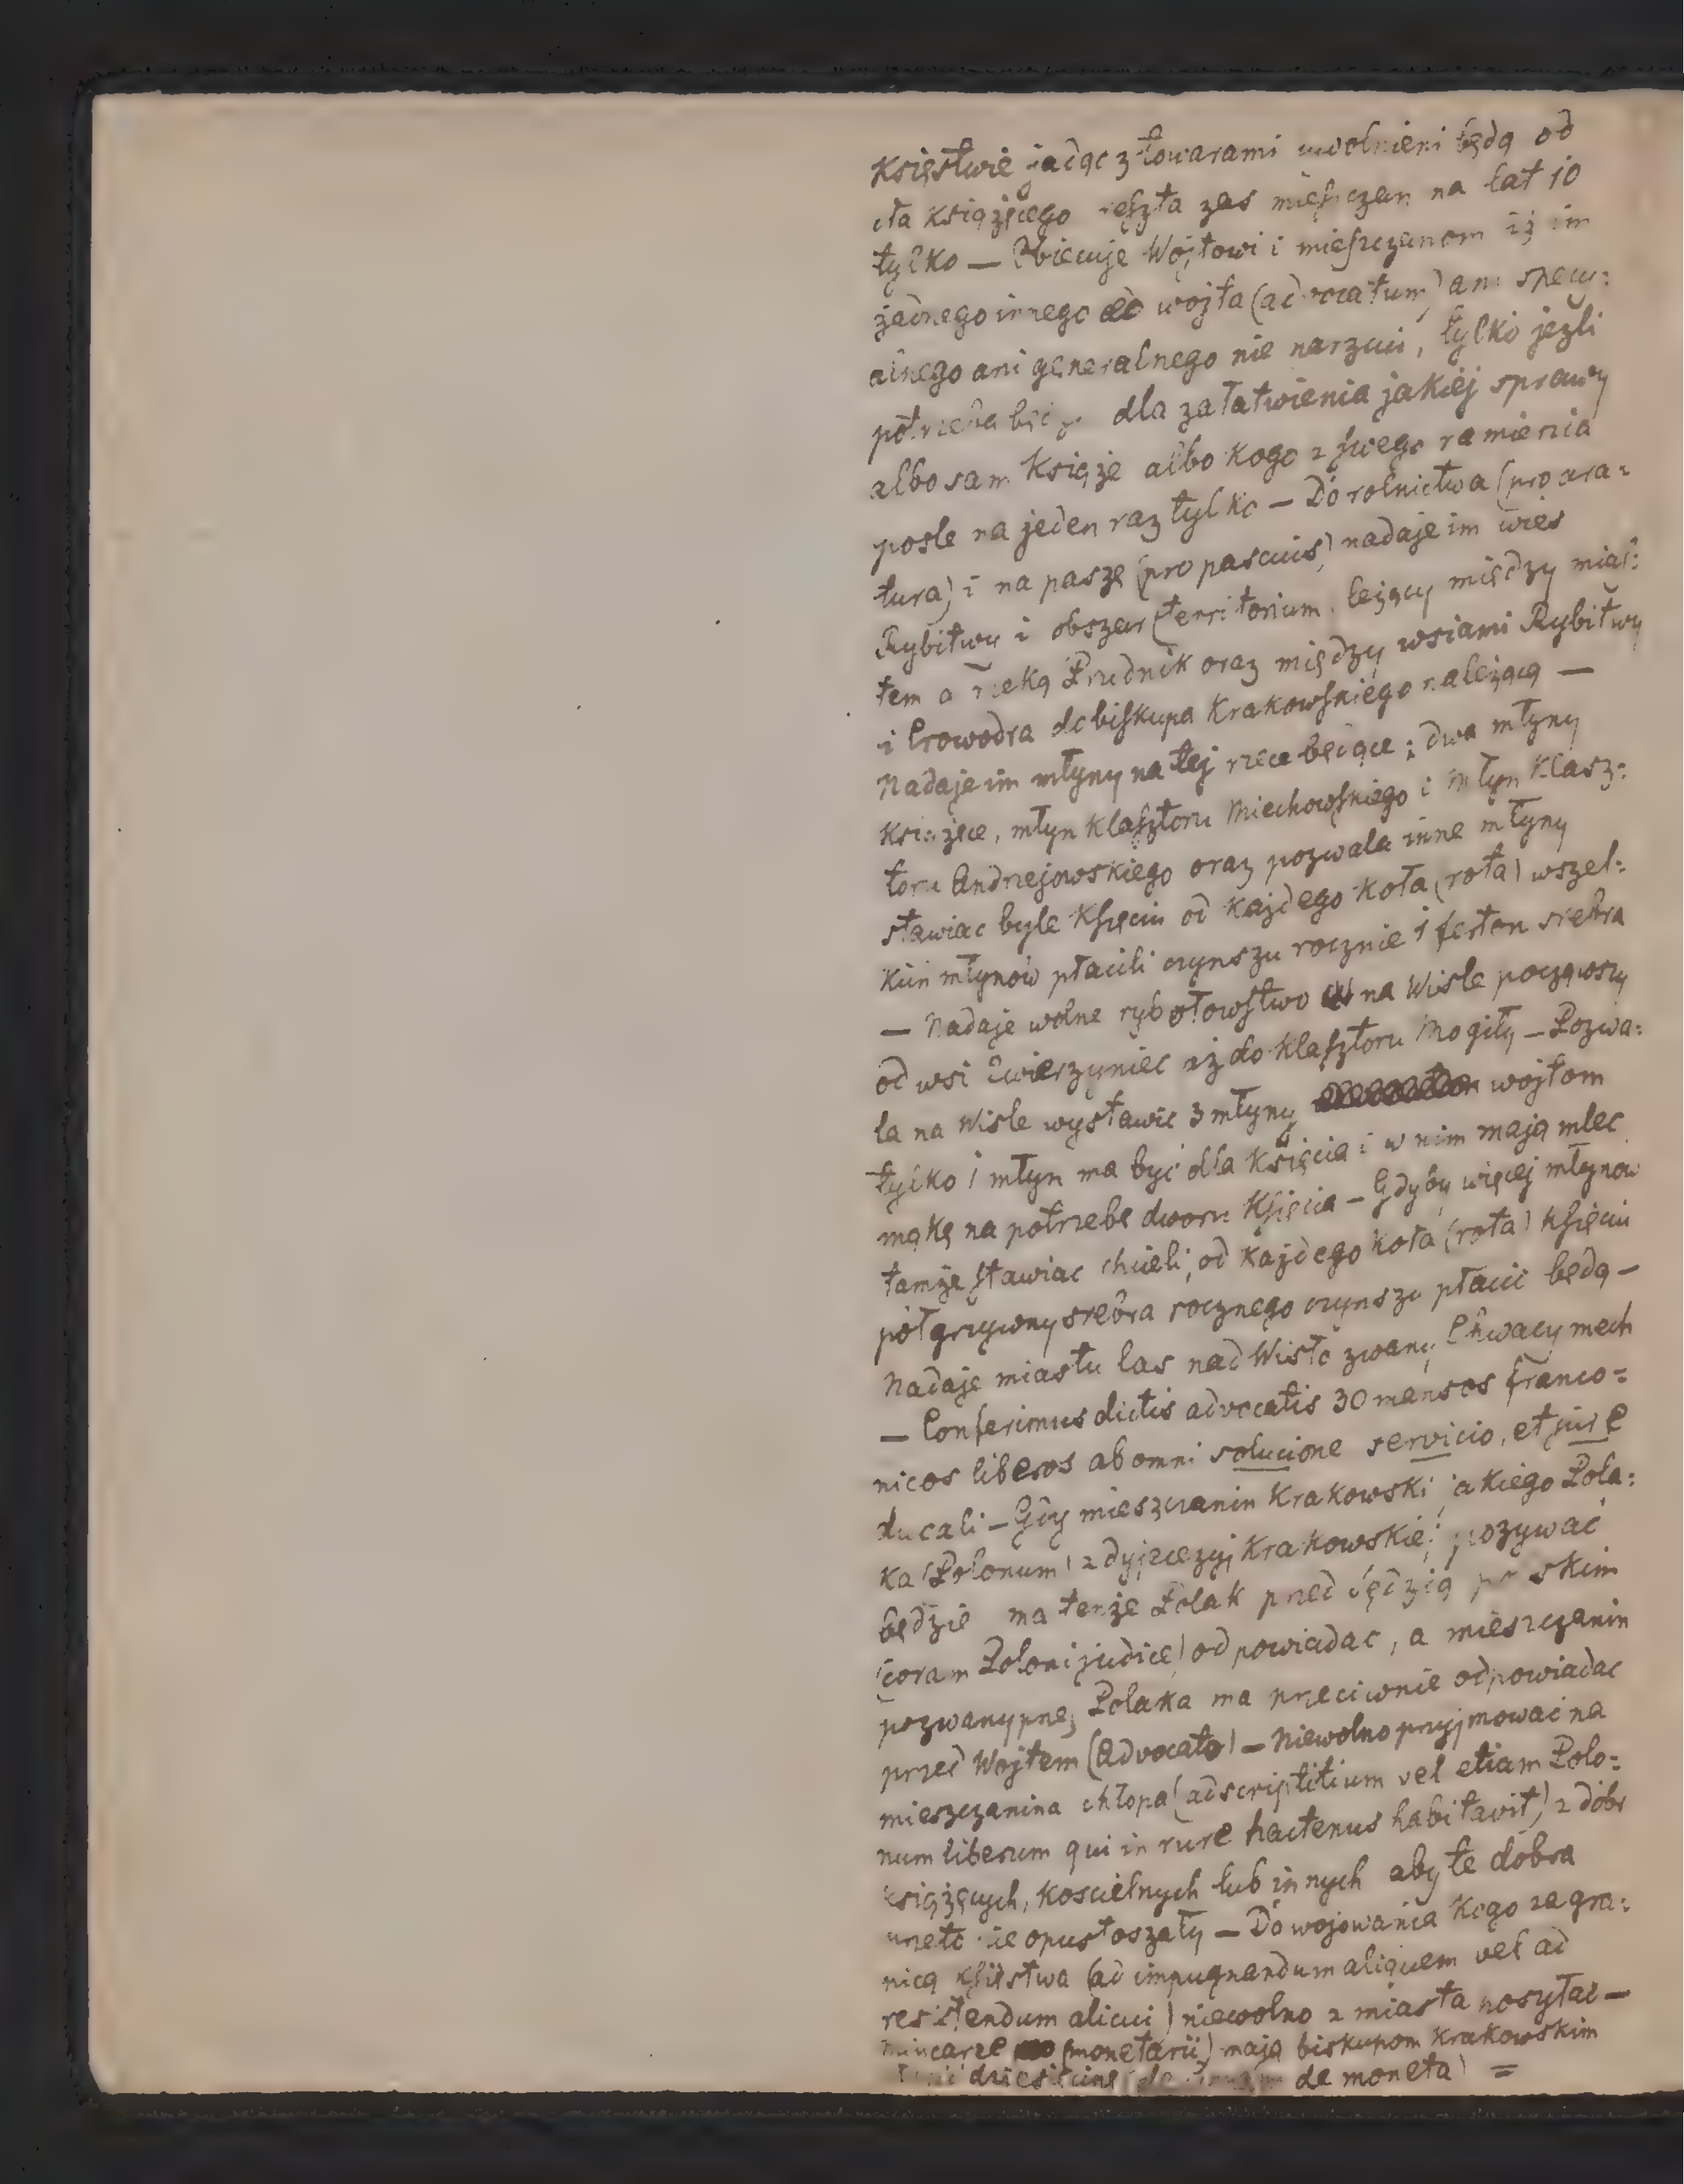 Księstwie jadąc z towarami uwolnieni będą od
cła książęcego reszta zas mieszczan na lat 10
tylko — Obiecuje Wójtowi i mieszczanom iż im
żadnego innego wojta (advocatum) ani specy:
alnego ani generalnego nie narzuci, tylko jeżli
potrzeba będzie dla załatwienia jakiéj sprawy
albo sam Książe albo kogo z swego ramienia
posle na jeden raz tylko — Do rolnictwa (pro ara:
tura) i na pasze (pro pascuis) nadaje im wies
Rybitwy i obszar (territorium) leżący między mias:
tem a rzeką Prudnik oraz między wsiami Rybitwy
i Crowodra do biskupa Krakowskiego należącą —
Nadaje im młyny na téj rzece będące; dwa młyny
książęce, młyn klasztoru Miechowskiego i młyn klasz:
toru Andrzejowskiego oraz pozwala inne młyny
stawiac byle Księciu od każdego koła (rota) wszel:
kich młynów płacili czynszu rocznie 1 ferton srebra
— Nadaje wolne rybołowstwo na Wisle począwszy
od wsi Zwierzyniec aż do klasztoru Mogiły — Pozwa:
la na Wisle wystawic 3 młyny wojtom
tylko 1 młyn ma być dla Księcia i w nim mają mlec
mąkę na potrzebe dworu Księcia — Gdyby więcéj młynow
tamże stawiac chcieli, od każdego koła (rota) Księciu
pół grzywny srebra rocznego czynszu płacić będą —
Nadaje miastu las nad Wisłą zwany Chwacymech
— Conferimus dictis advocatis 30 mansos franco=
nicos liberos ab omni solucione servicio, et jure
ducali — Gdy mieszczanin Krakowski jakiego Pola:
ka (Polonum) z dyjecezyj Krakowskiéj pozywać
będzie ma tenże Polak przed sędzią polskim
(coram Poloni judice) odpowiadac, a mieszczanin
pozwany przez Polaka ma przeciwnie odpowiadac
przed Wojtem (Advocato) — Niewolno przyjmować na
mieszczanina chłopa (adscriptitium vel etiam Polo=
num liberum qui in rure hactenus habitavit) z dóbr
książęcych, koscielnych lub innych aby te dobra
przeto nie opustoszały — Do wojowania kogo za gra:
nicą Księstwa (ad impugnandum aliquem vel ad
resistendum alicui) niewolno z miasta posyłac —
mincarze (monetarii) mają biskupom krakowskim
dziesięcinę de moneta) =